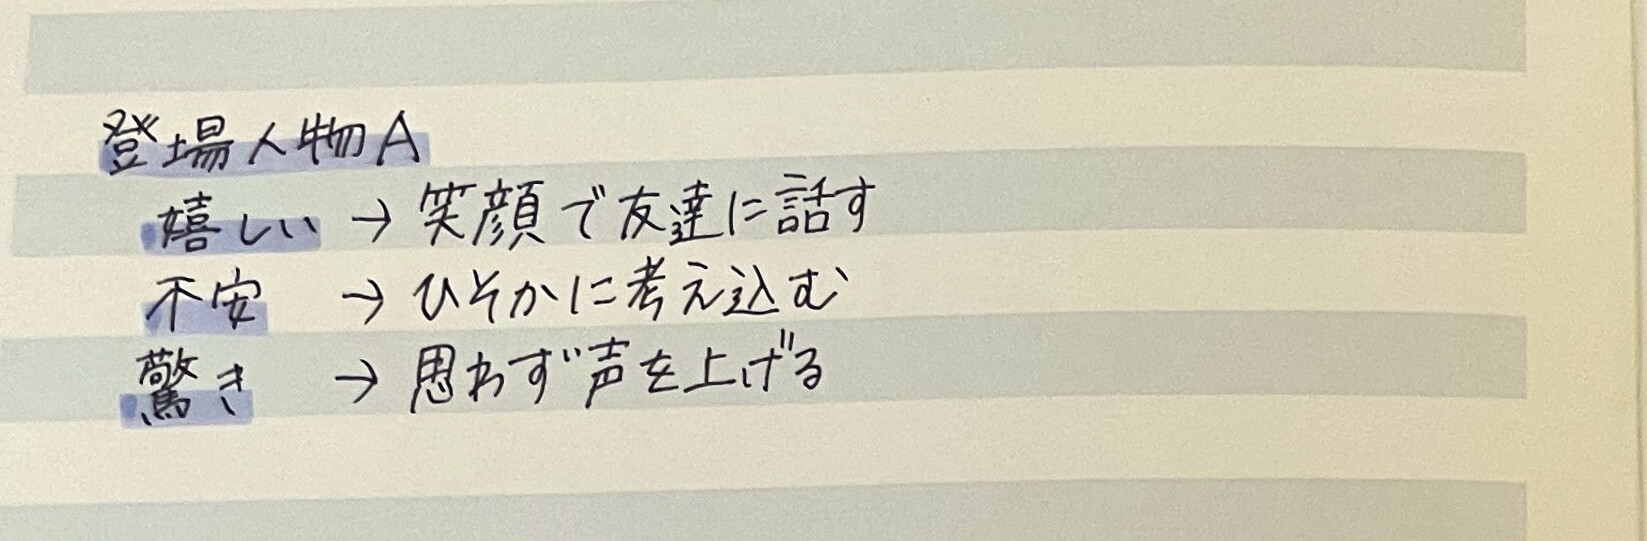 登場人物A
嬉しい → 笑顔で友達に話す
不安 → ひそかに考え込む
驚き → 思わず声を上げる